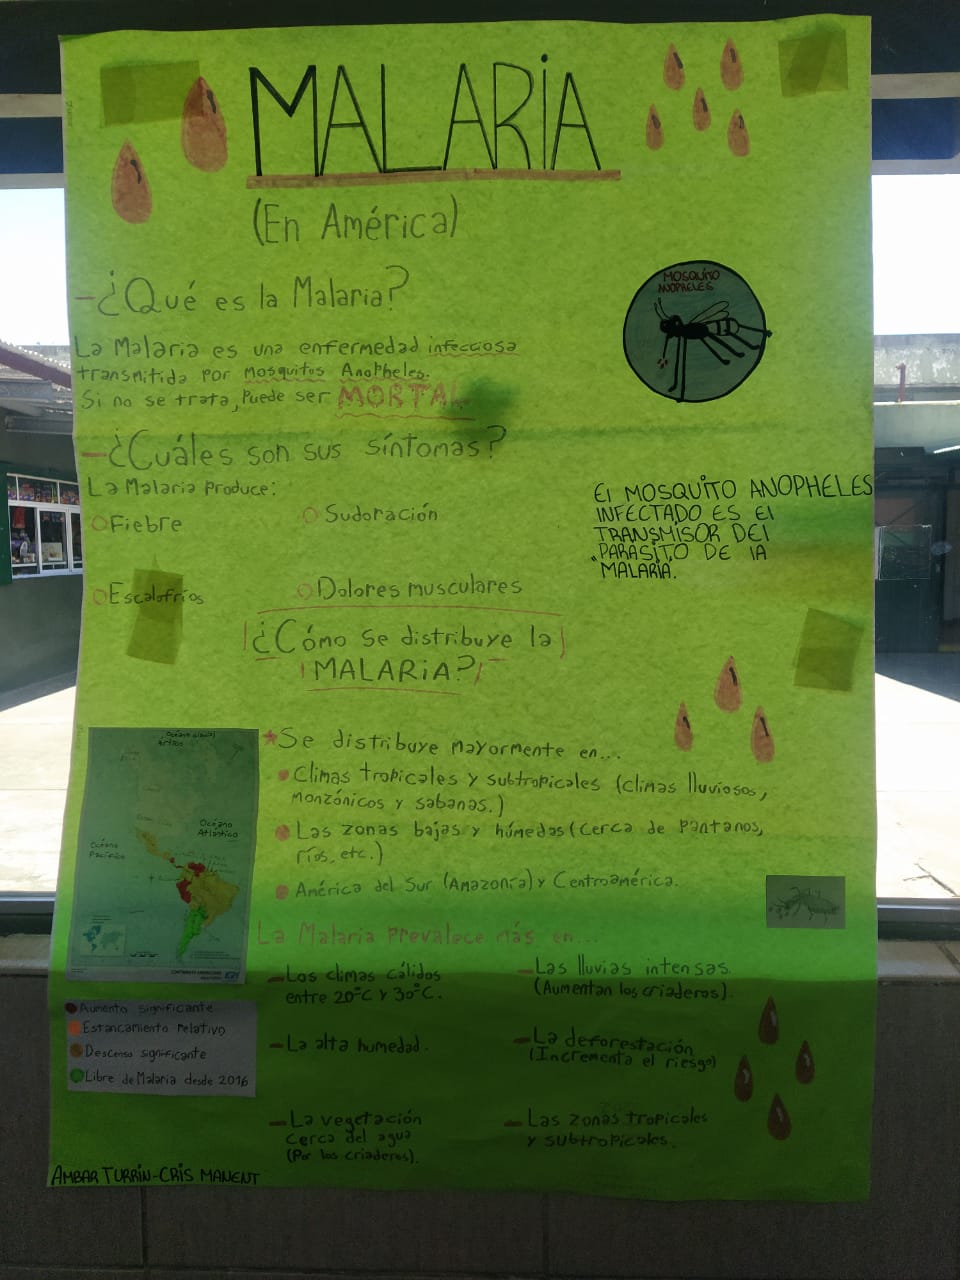 MALARIA
(En América)
-¿Qué es la Malaria?
La Malaria es una enfermedad infecciosa
transmitida por mosquitos Anopheles.
Si no se trata, puede ser MORTAL
MOSQUITO
ANOPHELES
-¿Cuáles son sus síntomas?
La Malaria produce:
Fiebre
Sudoración
Escalofríos
Dolores musculares
El MOSQUITO ANOPHELES
INFECTADO ES El
TRANSMISOR DEl
"PARÁSITO DE lA
MALARIA.
¿Cómo se distribuye la
MALARIA?
*Se distribuye mayormente en...
Climas tropicales y subtropicales (climas lluviosos,
monzónicos y sabanas.)
Las zonas bajas y húmedas (cerca de pantanos,
ríos, etc.)
América del Sur (Amazonía) y Centroamérica.
Océano
Atlántico
Océano
Pacífico
La Malaria prevalece más en...
-Los climas cálidos
entre 20°C y 30°C.
-Las lluvias intensas.
(Aumentan los criaderos).
-La alta humedad.
-La deforestación
(Incrementa el riesgo)
-La vegetación
cerca del agua
(Por los criaderos).
-Las zonas tropicales
y subtropicales.
Aumento significante
Estancamiento relativo
Descenso significante
Libre de Malaria desde 2016
AMBAR TURRIN-CRIS MANENT